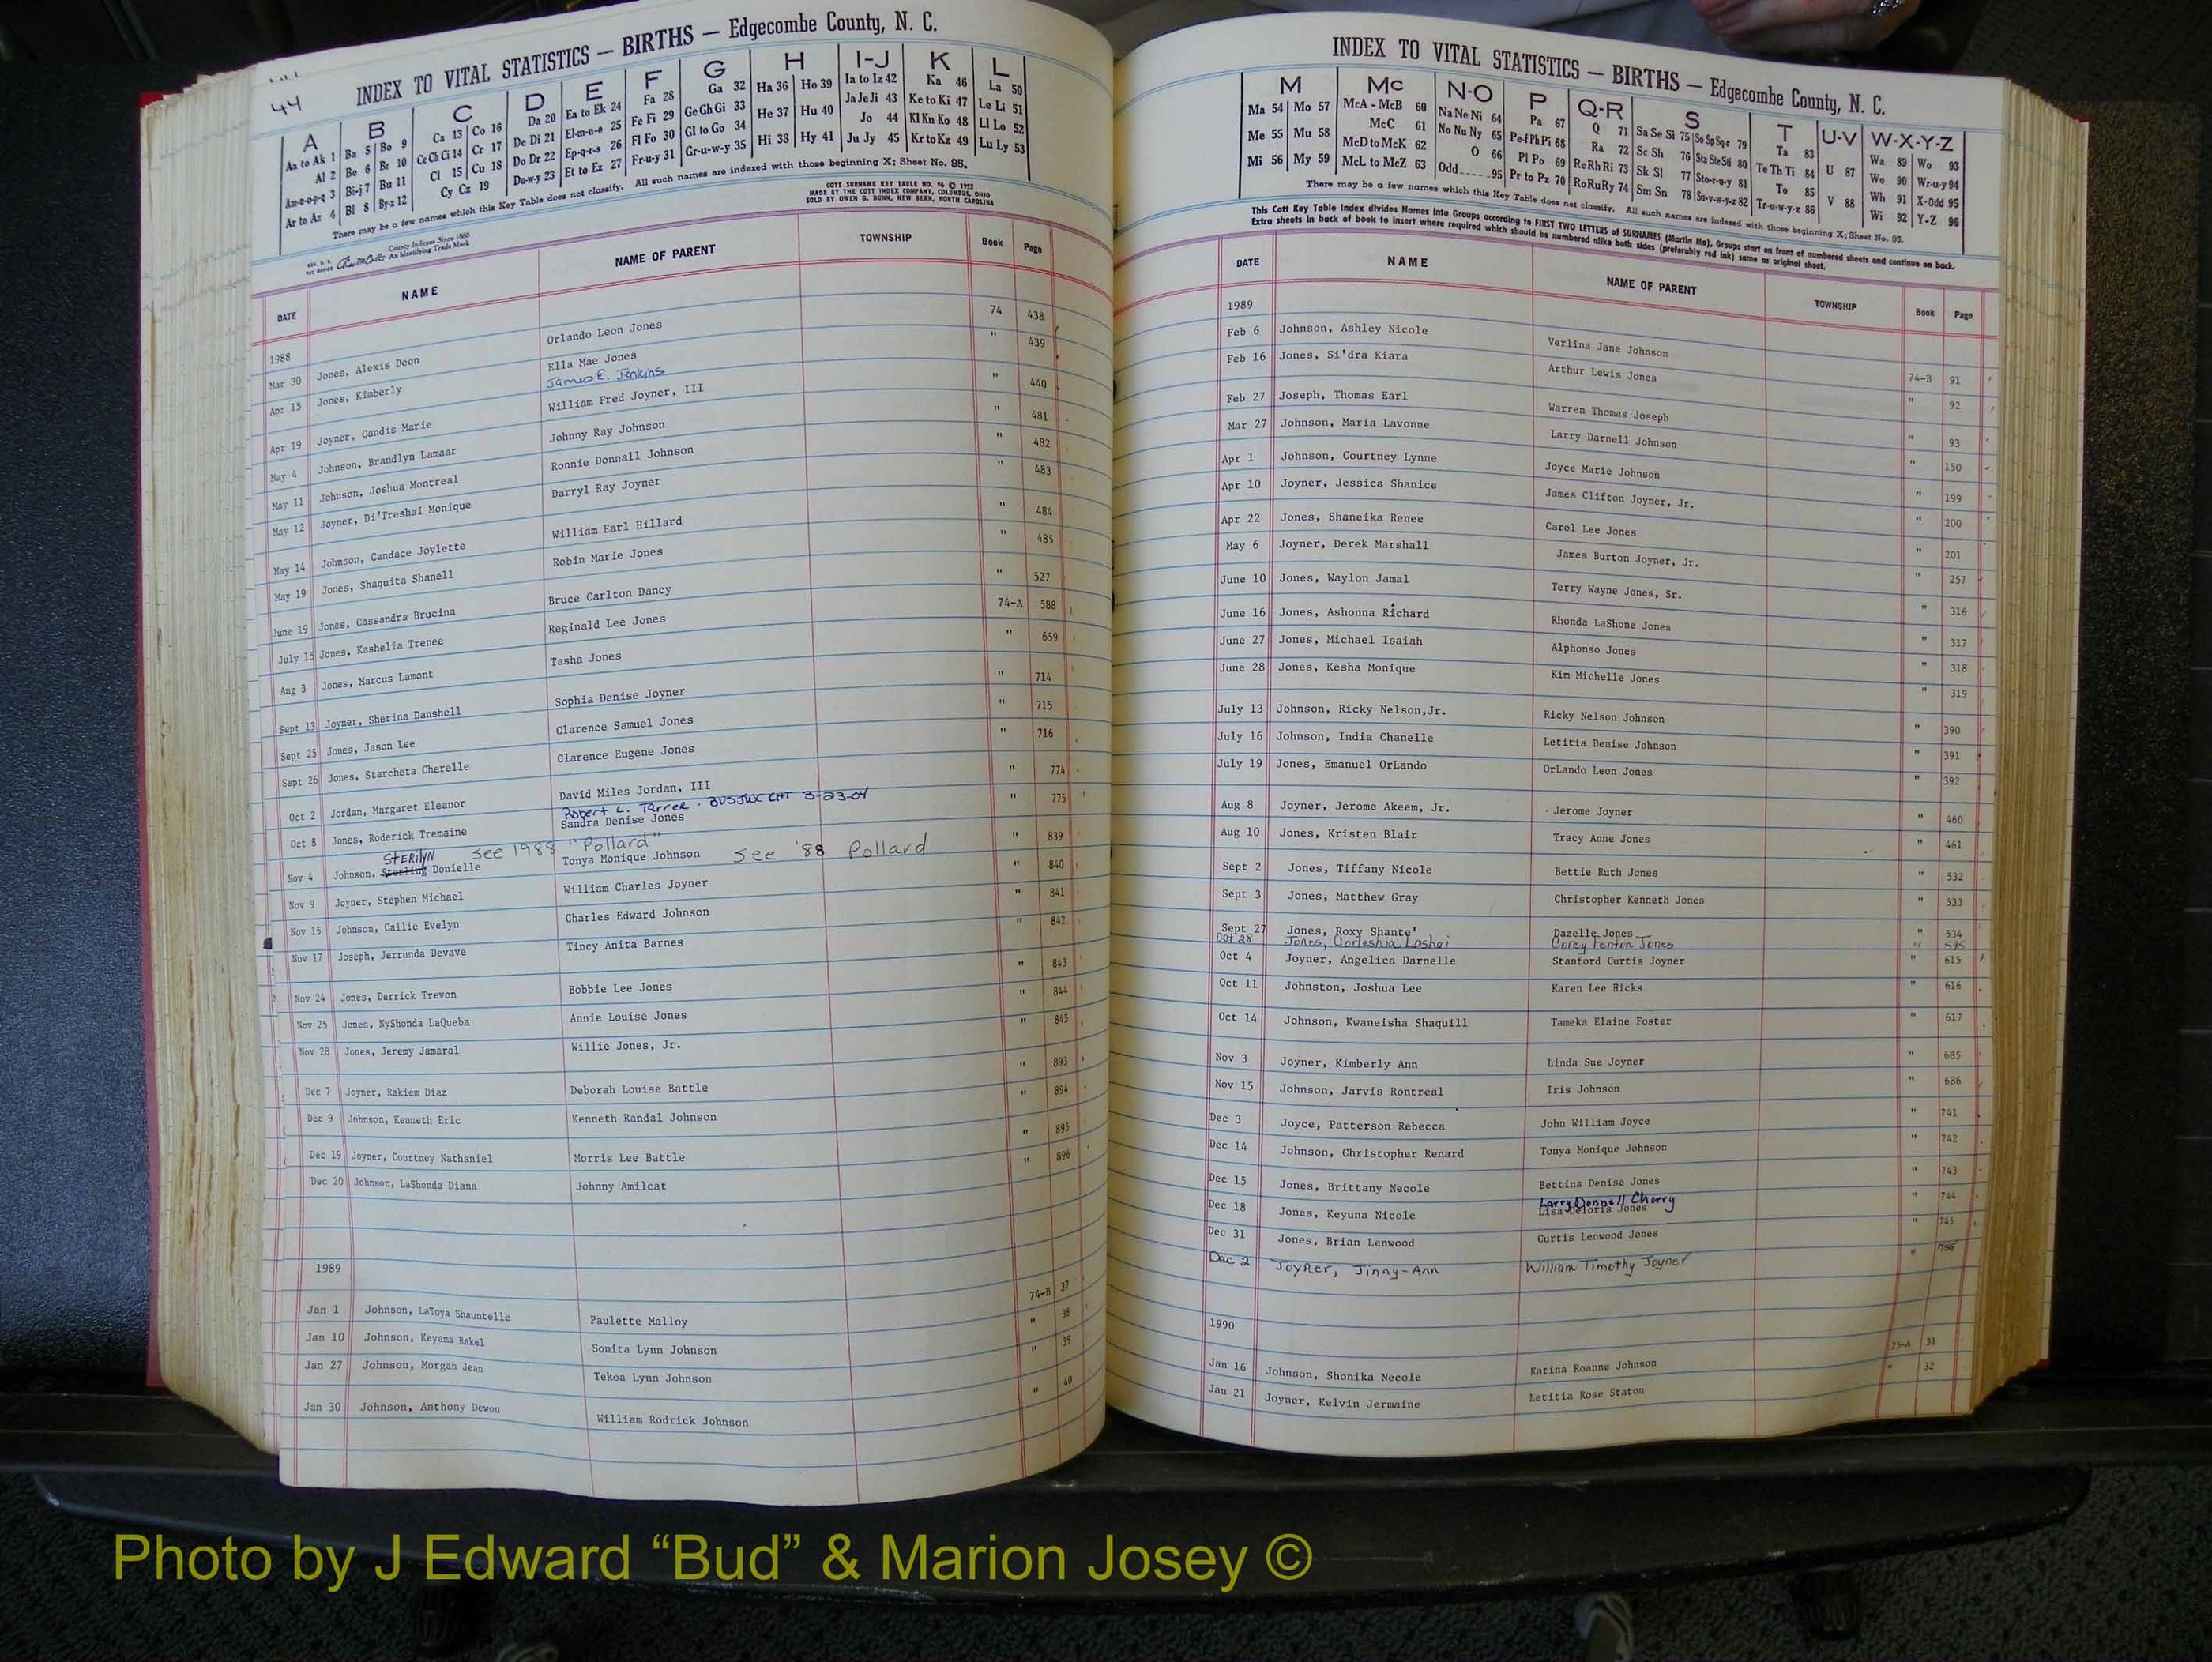 44
INDEX TO VITAL STATISTICS — BIRTHS — Edgecombe County, N. C.
A B C D E F G H I-J K L
Aa to Ak 1 Ba 5 Bo 9 Ca 13 Co 16 Da 20 Ea to Ek 24 Fa 28 Ga 32 Ha 36 Ho 39 Ia to Iz 42 Ka 46 La 50
Al 2 Be 6 Br 10 Ce Ch Ci 14 Cr 17 De Di 21 El-m-n-o 25 Fe Fi 29 Ge Gh Gi 33 He 37 Hu 40 Ja Je Ji 43 Ke to Ki 47 Le Li 51
Am-n-o-p-q 3 Bi-j 7 Bu 11 Cl 15 Cu 18 Do Dr 22 Ep-q-r-s 26 Fl Fo 30 Gl to Go 34 Hi 38 Hy 41 Jo 44 Kl Kn Ko 48 Ll Lo 52
Ar to Az 4 Bl 8 By-z 12 Cy Cz 19 Du-w-y 23 Et to Ez 27 Fr-u-y 31 Gr-u-w-y 35 Ju Jy 45 Kr to Kz 49 Lu Ly 53
There may be a few names which this Key Table does not classify. All such names are indexed with those beginning X; Sheet No. 95.
County Indexes Since 1888
An Identifying Trade Mark
COTT SURNAME KEY TABLE NO. 96 © 1952
MADE BY THE COTT INDEX COMPANY, COLUMBUS, OHIO
SOLD BY OWEN G. DUNN, NEW BERN, NORTH CAROLINA
DATE NAME NAME OF PARENT TOWNSHIP Book Page
1988
Mar 30 Jones, Alexis Deon Orlando Leon Jones 74 438
Apr 15 Jones, Kimberly Ella Mae Jones " 439
James E. Jenkins
Apr 19 Joyner, Candis Marie William Fred Joyner, III " 440
May 4 Johnson, Brandlyn Lamaar Johnny Ray Johnson " 481
May 11 Johnson, Joshua Montreal Ronnie Donnall Johnson " 482
May 12 Joyner, Di'Treshai Monique Darryl Ray Joyner " 483
May 14 Johnson, Candace Joylette William Earl Hillard " 484
May 19 Jones, Shaquita Shanell Robin Marie Jones " 485
June 19 Jones, Cassandra Brucina Bruce Carlton Dancy " 527
July 15 Jones, Kashelia Trenee Reginald Lee Jones 74-A 588
Aug 3 Jones, Marcus Lamont Tasha Jones " 659
Sept 13 Joyner, Sherina Danshell Sophia Denise Joyner " 714
Sept 25 Jones, Jason Lee Clarence Samuel Jones " 715
Sept 26 Jones, Starcheta Cherelle Clarence Eugene Jones " 716
Oct 2 Jordan, Margaret Eleanor David Miles Jordan, III " 774
Robert L. 3-23-04
Oct 8 Jones, Roderick Tremaine Sandra Denise Jones " 775
STERilyN See 1988 "Pollard"
Nov 4 Johnson, Sterling Donielle Tonya Monique Johnson See '88 Pollard " 839
Nov 9 Joyner, Stephen Michael William Charles Joyner " 840
Nov 15 Johnson, Callie Evelyn Charles Edward Johnson " 841
Nov 17 Joseph, Jerrunda Devave Tincy Anita Barnes " 842
Nov 24 Jones, Derrick Trevon Bobbie Lee Jones " 843
Nov 25 Jones, NyShonda LaQueba Annie Louise Jones " 844
Nov 28 Jones, Jeremy Jamaral Willie Jones, Jr. " 845
Dec 7 Joyner, Rakiem Diaz Deborah Louise Battle " 893
Dec 9 Johnson, Kenneth Eric Kenneth Randal Johnson " 894
Dec 19 Joyner, Courtney Nathaniel Morris Lee Battle " 895
Dec 20 Johnson, LaShonda Diana Johnny Amilcat " 896
1989
Jan 1 Johnson, LaToya Shauntelle Paulette Malloy 74-B 37
Jan 10 Johnson, Keyama Rakel Sonita Lynn Johnson " 38
Jan 27 Johnson, Morgan Jean Tekoa Lynn Johnson " 39
Jan 30 Johnson, Anthony Dewon William Rodrick Johnson " 40
INDEX TO VITAL STATISTICS — BIRTHS — Edgecombe County, N. C.
M Mc N-O P Q-R S T U-V W-X-Y-Z
Ma 54 Mo 57 McA - McB 60 Na Ne Ni 64 Pa 67 Q 71 Sa Se Si 75 So Sp Sq-r 79 Ta 83 U 87 Wa 89 Wo 93
Me 55 Mu 58 McC 61 No Nu Ny 65 Pe-f Ph Pi 68 Ra 72 Sc Sh 76 Sta Ste Sti 80 Te Th Ti 84 V 88 We 90 Wr-u-y 94
Mi 56 My 59 McD to McK 62 O 66 Pl Po 69 Re Rh Ri 73 Sk Sl 77 Sto-r-u-y 81 To 85 Wh 91 X-Odd 95
McL to McZ 63 Odd 95 Pr to Pz 70 Ro Ru Ry 74 Sm Sn 78 Su-v-w-y-z 82 Tr-u-w-y-z 86 Wi 92 Y-Z 96
There may be a few names which this Key Table does not classify. All such names are indexed with those beginning X; Sheet No. 95.
This Cott Key Table Index divides Names into Groups according to FIRST TWO LETTERS of SURNAMES (Martin Ma), Groups start on front of numbered sheets and continue on back.
Extra sheets in back of book to insert where required which should be numbered alike both sides (preferably red ink) same as original sheet.
DATE NAME NAME OF PARENT TOWNSHIP Book Page
1989
Feb 6 Johnson, Ashley Nicole Verlina Jane Johnson 74-B 91
Feb 16 Jones, Si'dra Kiara Arthur Lewis Jones " 92
Feb 27 Joseph, Thomas Earl Warren Thomas Joseph " 93
Mar 27 Johnson, Maria Lavonne Larry Darnell Johnson " 150
Apr 1 Johnson, Courtney Lynne Joyce Marie Johnson " 199
Apr 10 Joyner, Jessica Shanice James Clifton Joyner, Jr. " 200
Apr 22 Jones, Shaneika Renee Carol Lee Jones " 201
May 6 Joyner, Derek Marshall James Burton Joyner, Jr. " 257
June 10 Jones, Waylon Jamal Terry Wayne Jones, Sr. " 316
June 16 Jones, Ashonna Richard Rhonda LaShone Jones " 317
June 27 Jones, Michael Isaiah Alphonso Jones " 318
June 28 Jones, Kesha Monique Kim Michelle Jones " 319
July 13 Johnson, Ricky Nelson,Jr. Ricky Nelson Johnson " 390
July 16 Johnson, India Chanelle Letitia Denise Johnson " 391
July 19 Jones, Emanuel OrLando OrLando Leon Jones " 392
Aug 8 Joyner, Jerome Akeem, Jr. Jerome Joyner " 460
Aug 10 Jones, Kristen Blair Tracy Anne Jones " 461
Sept 2 Jones, Tiffany Nicole Bettie Ruth Jones " 532
Sept 3 Jones, Matthew Gray Christopher Kenneth Jones " 533
Sept 27 Jones, Roxy Shante' Dazelle Jones " 534
Oct 28 Jones, Corleshia Lashai Corey Fenton Jones " 595
Oct 4 Joyner, Angelica Darnelle Stanford Curtis Joyner " 615
Oct 11 Johnston, Joshua Lee Karen Lee Hicks " 616
Oct 14 Johnson, Kwaneisha Shaquill Tameka Elaine Foster " 617
Nov 3 Joyner, Kimberly Ann Linda Sue Joyner " 685
Nov 15 Johnson, Jarvis Rontreal Iris Johnson " 686
Dec 3 Joyce, Patterson Rebecca John William Joyce " 741
Dec 14 Johnson, Christopher Renard Tonya Monique Johnson " 742
Dec 15 Jones, Brittany Necole Bettina Denise Jones " 743
Larry Donnell Cherry
Dec 18 Jones, Keyuna Nicole Lisa Deloris Jones " 744
Dec 31 Jones, Brian Lenwood Curtis Lenwood Jones " 745
Dec 2 Joyner, Jinny-Ann William Timothy Joyner "
1990
Jan 16 Johnson, Shonika Necole Katina Roanne Johnson 75-A 31
Jan 21 Joyner, Kelvin Jermaine Letitia Rose Staton " 32
Photo by J Edward “Bud” & Marion Josey ©